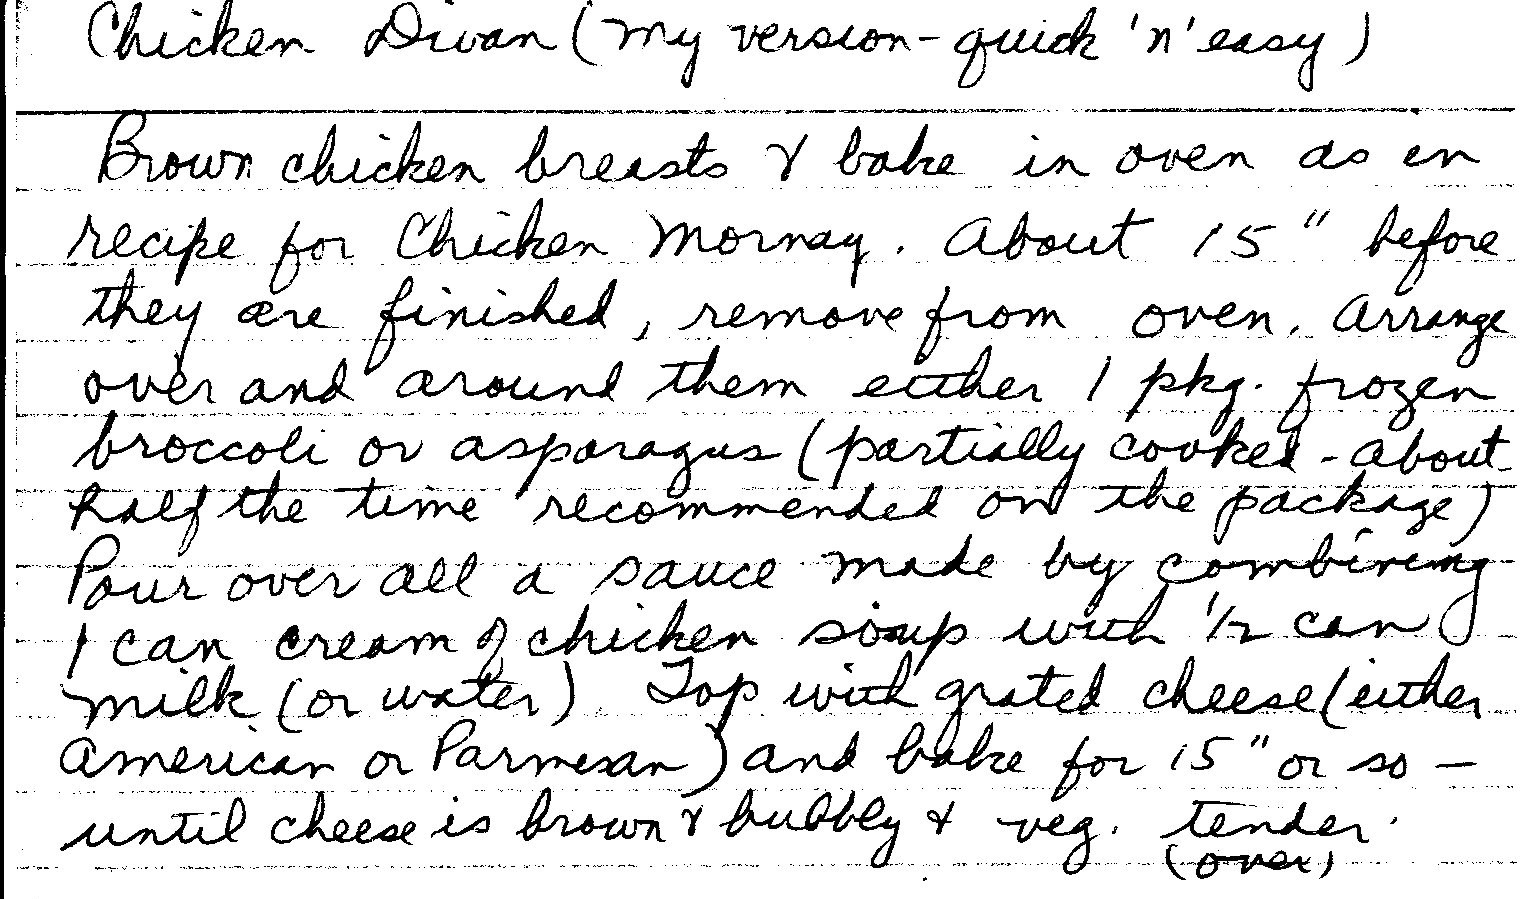 Chicken Divan (my version - quick 'n' easy)
Brown chicken breasts & bake in oven as in
recipe for Chicken Mornay. About 15" before
they are finished, remove from oven. Arrange
over and around them either 1 pkg. frozen
broccoli or asparagus (partially cooked - about
half the time recommended on the package)
Pour over all a sauce made by combining
1 can cream of chicken soup with 1/2 can
milk (or water) Top with grated cheese (either
American or Parmesan) and bake for 15" or so —
until cheese is brown & bubbly & veg. tender.
(over)